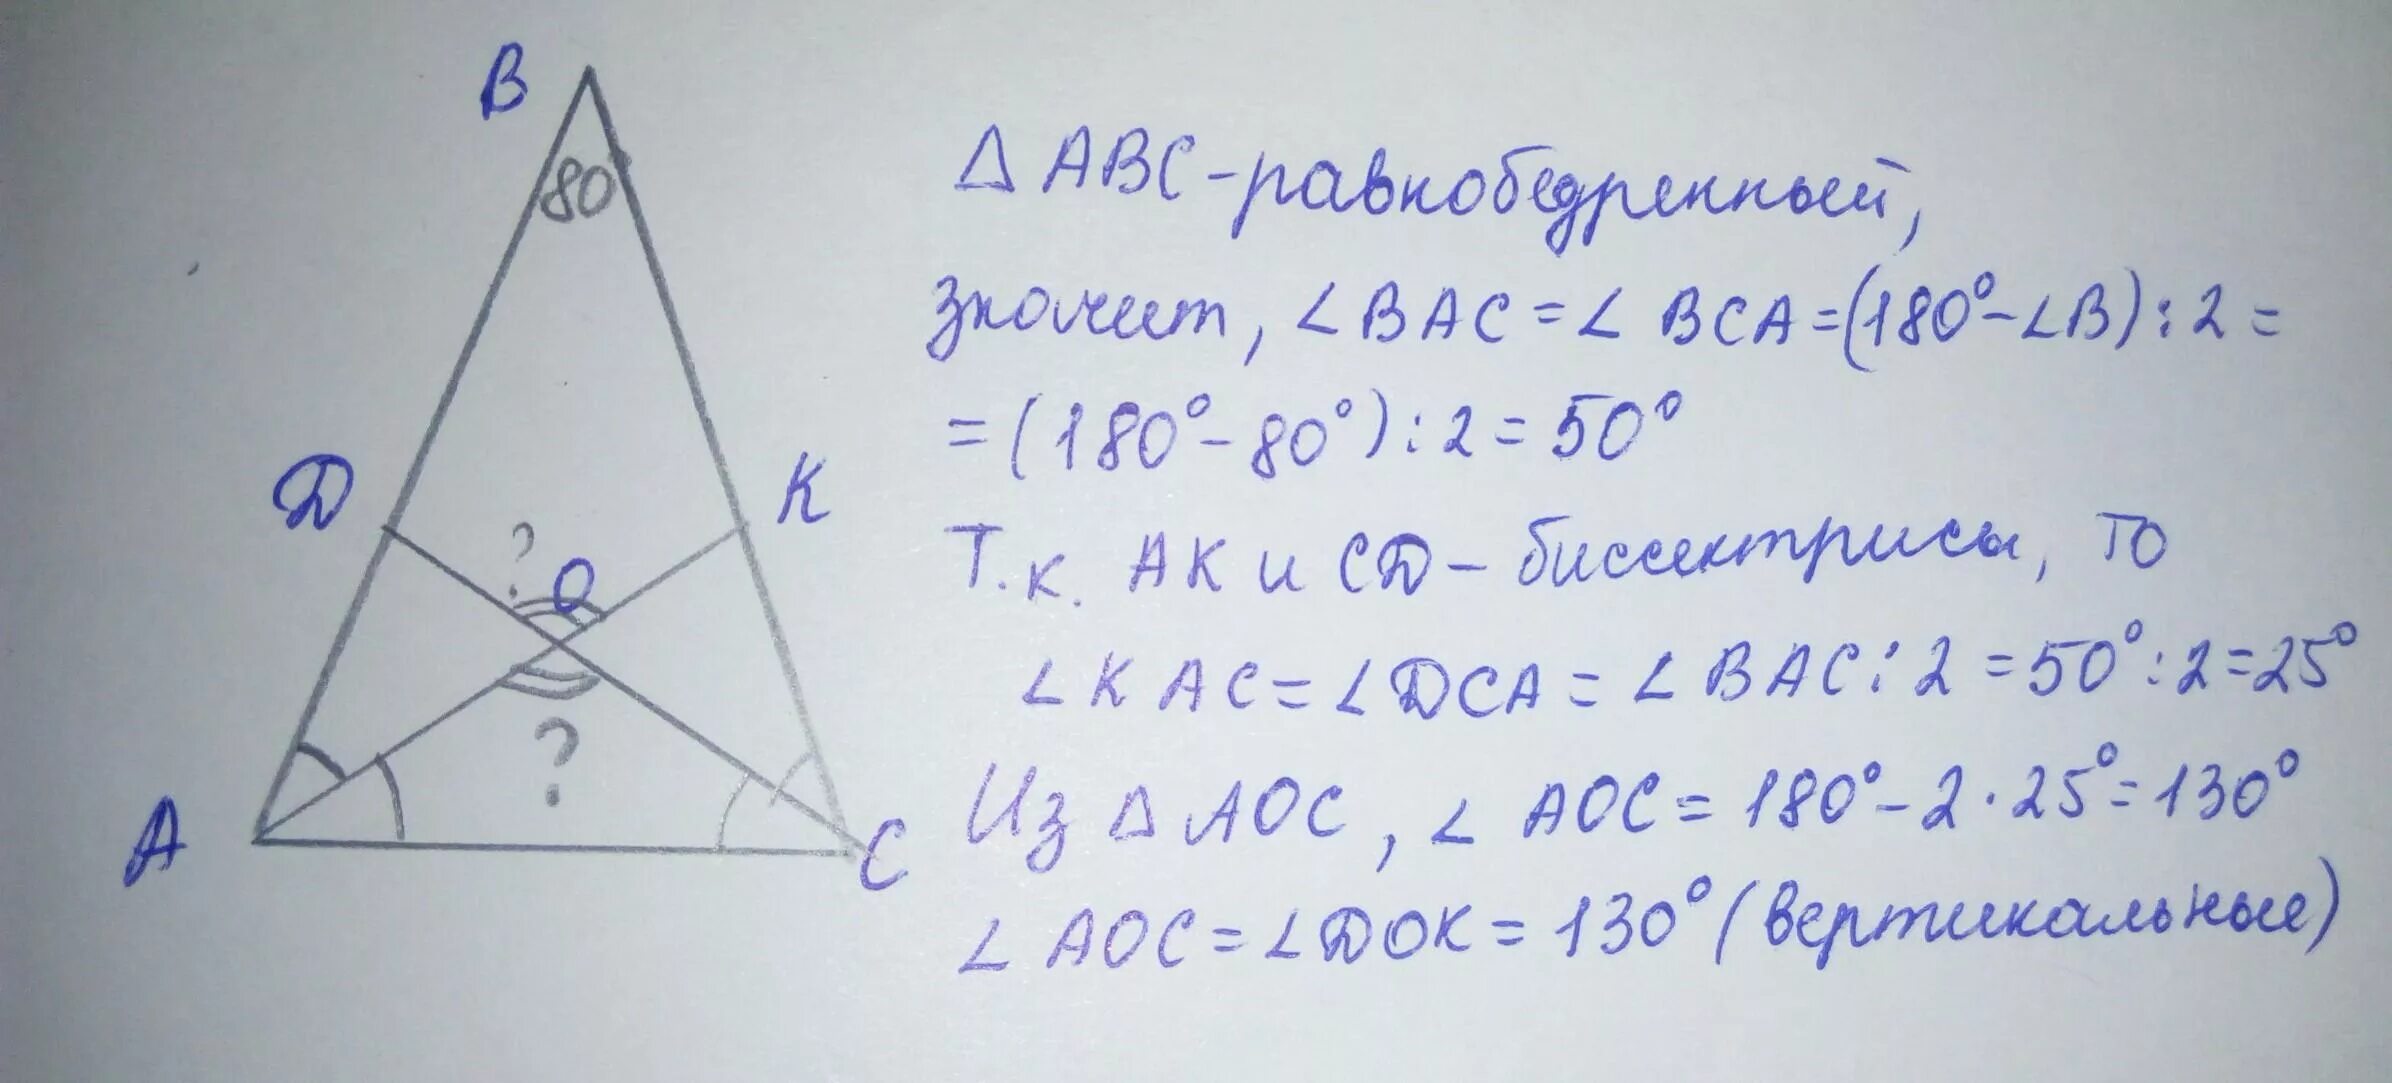 B
80°
Δ ABC - равнобедренный,
значит, ∠ BAC = ∠ BCA = (180° - ∠B) : 2 =
= (180° - 80°) : 2 = 50°
D
K
?
O
Т.к. AK и CD - биссектрисы, то
∠ KAC = ∠ DCA = ∠ BAC : 2 = 50° : 2 = 25°
?
A
C
Из Δ AOC, ∠ AOC = 180° - 2 · 25° = 130°
∠ AOC = ∠ DOK = 130° (вертикальные)